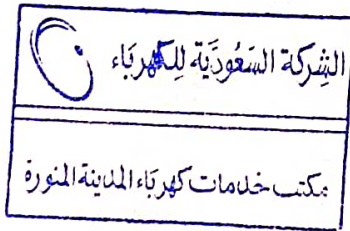 الشركة السعودية للكهرباء
مكتب خدمات كهرباء المدينة المنورة